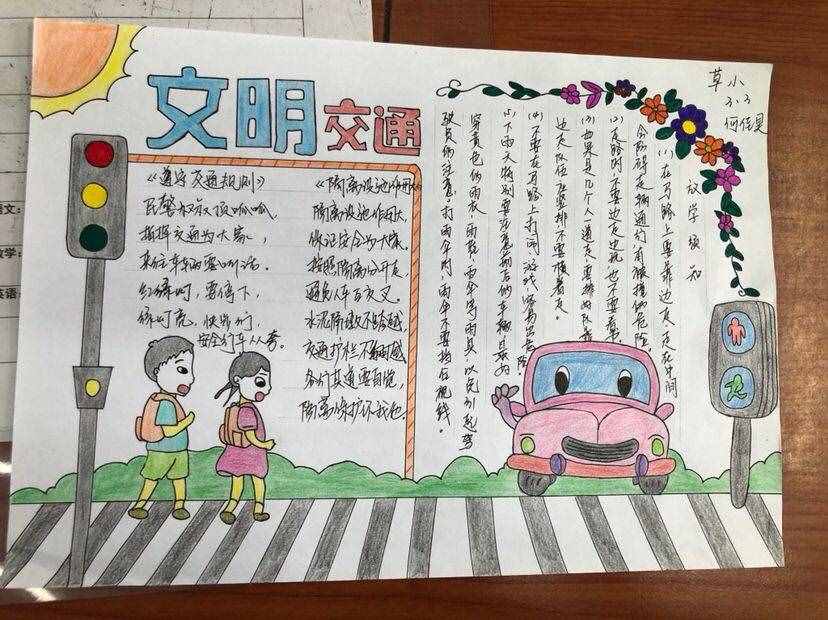 文明交通
《遵守交通规则》
民警叔叔顶呱呱,
指挥交通为大家,
来往车车要听话。
红绿灯,要停下,
绿灯亮,快
安全行车人人夸。
《隔离设施作用大》
隔离设施作用大,
保证安全为大家。
按照隔离分开走,
避免人车互交叉。
水泥隔墩不跨越,
交通护栏不翻越,
各行其道要自觉,
隔离保护你我他。
草小
3.3
何佳
放学须知
(1)在马路上要靠边走,走在中间
会阻碍车辆通行,有被撞的危险。
(2)走路时不要边走边玩,也不要看书。
(3)如果是几个人一道走,要排好队靠
边走,队伍应竖排,不要横着走。
(4)不要在马路上打闹、游戏,容易出危险
(5)下雨天特别要注意前后的车辆,最好
穿黄色的雨衣、雨鞋、雨伞等雨具,以免引起驾
驶员的注意。打雨伞时,雨伞不要挡住视线。
语文:
英语: